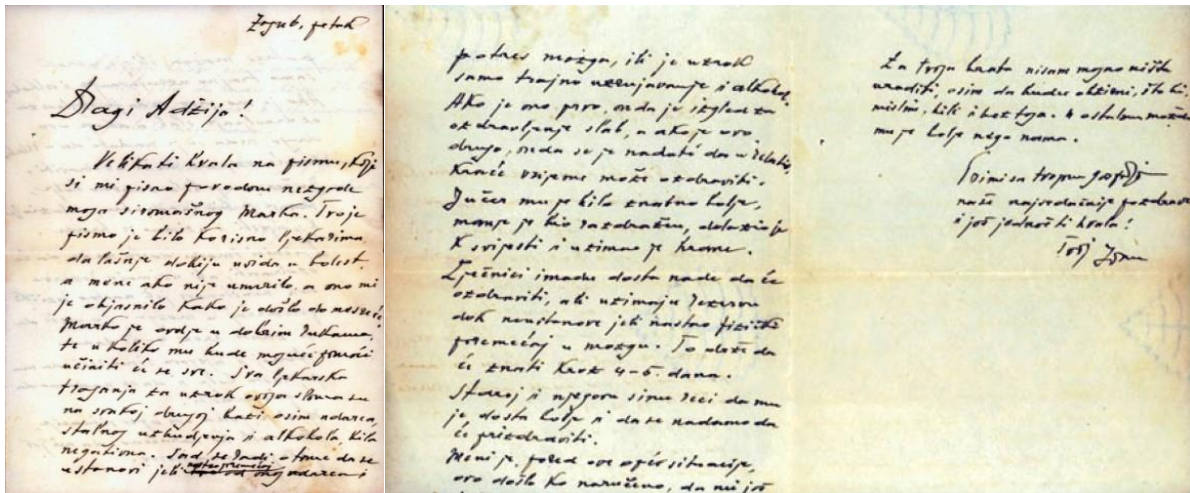 Zagreb, petak
Dragi Adžija!
Velika ti hvala na pismu, koje
si mi pisao povodom nezgode
moga siromašnog Marka. Tvoje
pismo je bilo korisno ljekarima
da lakše dobiju uvida u bolest,
a meni ako nije umirilo, a ono mi
je objasnilo kako je došlo do nesreće.
Marko je ovdje u dobrim rukama,
te u koliko mu bude moguće pomoći
učiniti će se sve. Sva ljekarska
traganja za uzrok ovoga
na svakoj drugoj bazi osim udarca,
stalnog uzbudjenja i alkohola, bila
negativna. Sad se radi o tome da se
ustanovi jeli udarca i
potres mozga, ili je uzrok
samo trajno uzrujavanje i alkohol.
Ako je ono prvo, onda je izgled za
ozdravljenje slab, a ako je ovo
drugo, onda se je nadati da u
kraće vrijeme može ozdraviti.
Jučer mu je bilo znatno bolje,
manje je bio razdražen, dolazio je
k svijesti i uzimao je hrane.
Liječnici imadu dosta nade da će
ozdraviti, ali uzimaju rezervu
dok neustanove jeli nastao fizički
poremećaj u mozgu. To drže da
će znati kroz 4-5 dana.
Staroj i njegovu sinu reci da mu
je dosta bolje i da se nadamo da
će prizdraviti.
Meni je, pored ove situacije,
ovo došlo ko naručeno, da mi još
Za tvoga brata nisam mogao ništa
uraditi, osim da bude obzirni, što bi,
mislim, bili i bez toga. U ostalom možda
mu je bolje nego nama.
Primi sa tvojom gospođom
naše najsrdačnije pozdrave
i još jednoć ti hvala!
Tvoj